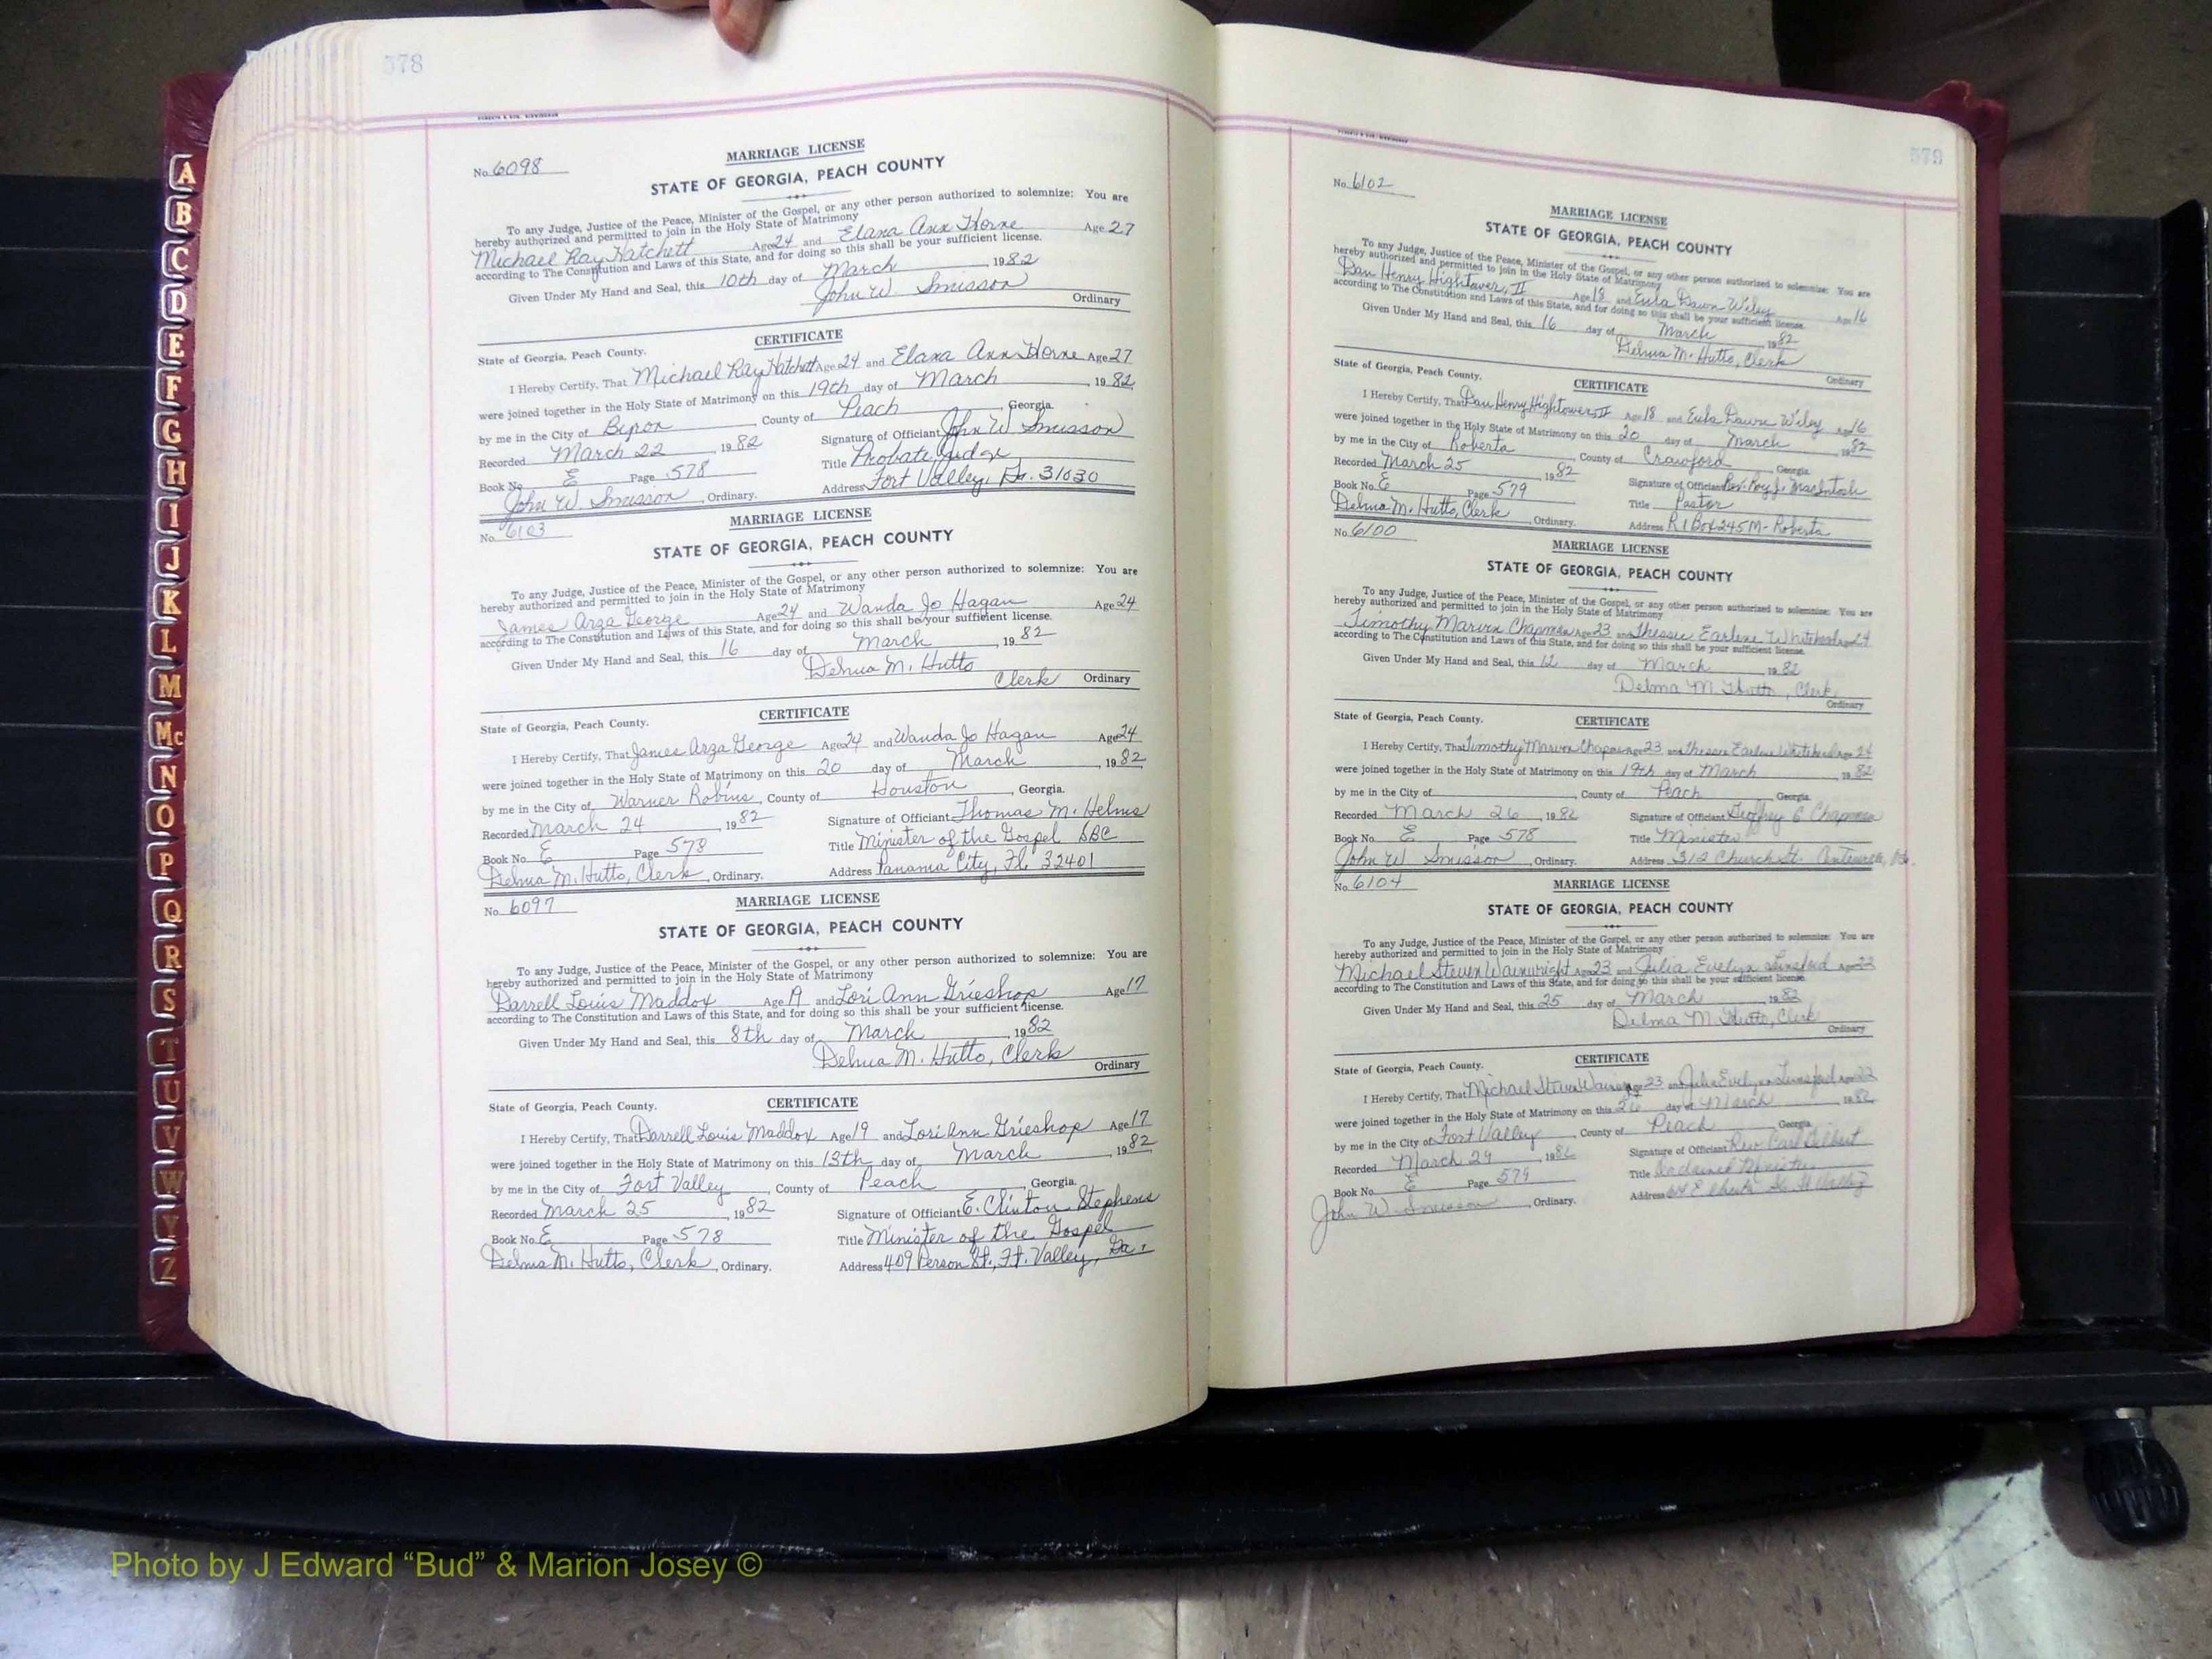 578
MARRIAGE LICENSE
No. 6098
STATE OF GEORGIA, PEACH COUNTY
To any Judge, Justice of the Peace, Minister of the Gospel, or any other person authorized to solemnize: You are
hereby authorized and permitted to join in the Holy State of Matrimony
Michael Ray Hatchett Age 24 and Elana Ann Horne Age 27
according to The Constitution and Laws of this State, and for doing so this shall be your sufficient license.
Given Under My Hand and Seal, this 10th day of March 1982
John W. Smisson
Ordinary
CERTIFICATE
State of Georgia, Peach County.
I Hereby Certify, That Michael Ray Hatchett Age 24 and Elana Ann Horne Age 27
were joined together in the Holy State of Matrimony on this 19th day of March, 1982
by me in the City of Byron, County of Peach, Georgia.
Recorded March 22, 1982 Signature of Officiant John W. Smisson
Book No. E Page 578 Title Probate Judge
John W. Smisson, Ordinary. Address Fort Valley, Ga. 31030
No. 6103
MARRIAGE LICENSE
STATE OF GEORGIA, PEACH COUNTY
To any Judge, Justice of the Peace, Minister of the Gospel, or any other person authorized to solemnize: You are
hereby authorized and permitted to join in the Holy State of Matrimony
James Arza George Age 24 and Wanda Jo Hagan Age 24
according to The Constitution and Laws of this State, and for doing so this shall be your sufficient license.
Given Under My Hand and Seal, this 16 day of March, 1982
Delma M. Hutto
Clerk Ordinary
CERTIFICATE
State of Georgia, Peach County.
I Hereby Certify, That James Arza George Age 24 and Wanda Jo Hagan Age 24
were joined together in the Holy State of Matrimony on this 20 day of March, 1982
by me in the City of Warner Robins, County of Houston, Georgia.
Recorded March 24, 1982 Signature of Officiant Thomas M. Helms
Book No. E Page 578 Title Minister of the Gospel SBC
Delma M. Hutto, Clerk, Ordinary. Address Panama City, Fl. 32401
No. 6097
MARRIAGE LICENSE
STATE OF GEORGIA, PEACH COUNTY
To any Judge, Justice of the Peace, Minister of the Gospel, or any other person authorized to solemnize: You are
hereby authorized and permitted to join in the Holy State of Matrimony
Darrell Louis Maddox Age 19 and Lori Ann Grieshop Age 17
according to The Constitution and Laws of this State, and for doing so this shall be your sufficient license.
Given Under My Hand and Seal, this 8th day of March 1982
Delma M. Hutto, Clerk
Ordinary
CERTIFICATE
State of Georgia, Peach County.
I Hereby Certify, That Darrell Louis Maddox Age 19 and Lori Ann Grieshop Age 17
were joined together in the Holy State of Matrimony on this 13th day of March, 1982
by me in the City of Fort Valley, County of Peach, Georgia.
Recorded March 25, 1982 Signature of Officiant E. Clinton Stephens
Book No. E Page 578 Title Minister of the Gospel
Delma M. Hutto, Clerk, Ordinary. Address 409 Person St., Ft. Valley, Ga.
579
No. 6102
MARRIAGE LICENSE
STATE OF GEORGIA, PEACH COUNTY
To any Judge, Justice of the Peace, Minister of the Gospel, or any other person authorized to solemnize: You are
hereby authorized and permitted to join in the Holy State of Matrimony
Dan Henry Hightower, II Age 18 and Eula Dawn Wiley Age 16
according to The Constitution and Laws of this State, and for doing so this shall be your sufficient license.
Given Under My Hand and Seal, this 16 day of March 1982
Delma M. Hutto, Clerk
Ordinary
State of Georgia, Peach County.
CERTIFICATE
I Hereby Certify, That Dan Henry Hightower II Age 18 and Eula Dawn Wiley Age 16
were joined together in the Holy State of Matrimony on this 20 day of March 1982
by me in the City of Roberta, County of Crawford, Georgia.
Recorded March 25 1982 Signature of Officiant Rev. Roy J. MacIntosh
Book No. E Page 579 Title Pastor
Delma M. Hutto, Clerk, Ordinary. Address R 1 Box 245M - Roberta
No. 6100
MARRIAGE LICENSE
STATE OF GEORGIA, PEACH COUNTY
To any Judge, Justice of the Peace, Minister of the Gospel, or any other person authorized to solemnize: You are
hereby authorized and permitted to join in the Holy State of Matrimony
Timothy Marvin Chapman Age 23 and Earlene Whitehead Age 24
according to The Constitution and Laws of this State, and for doing so this shall be your sufficient license.
Given Under My Hand and Seal, this 12 day of March 1982
Delma M. Hutto, Clerk
Ordinary
State of Georgia, Peach County.
CERTIFICATE
I Hereby Certify, That Timothy Marvin Chapman Age 23 and Earlene Whitehead Age 24
were joined together in the Holy State of Matrimony on this 19th day of March 1982
by me in the City of, County of Peach, Georgia.
Recorded March 26, 1982 Signature of Officiant Geoffrey E Chapman
Book No. E Page 578 Title Minister
John W Smisson, Ordinary. Address 312 Church St.
No. 6104
MARRIAGE LICENSE
STATE OF GEORGIA, PEACH COUNTY
To any Judge, Justice of the Peace, Minister of the Gospel, or any other person authorized to solemnize: You are
hereby authorized and permitted to join in the Holy State of Matrimony
Michael Steven Wainwright Age 23 and Julia Evelyn Lunsford Age 22
according to The Constitution and Laws of this State, and for doing so this shall be your sufficient license.
Given Under My Hand and Seal, this 25 day of March 1982
Delma M. Hutto, Clerk
Ordinary
State of Georgia, Peach County.
CERTIFICATE
I Hereby Certify, That Michael Steven Age 23 and Julia Evelyn Lunsford Age 22
were joined together in the Holy State of Matrimony on this 26 day of March 1982
by me in the City of Fort Valley, County of Peach, Georgia
Recorded March 29 1982 Signature of Officiant Rev Carl
Book No. E Page 579 Title Minister
John W. Smisson, Ordinary. Address Ft Valley
A
B
C
D
E
F
G
H
I
J
K
L
M
Mc
N
O
P
Q
R
S
T
U
V
W
Y
Z
Photo by J Edward “Bud” & Marion Josey ©